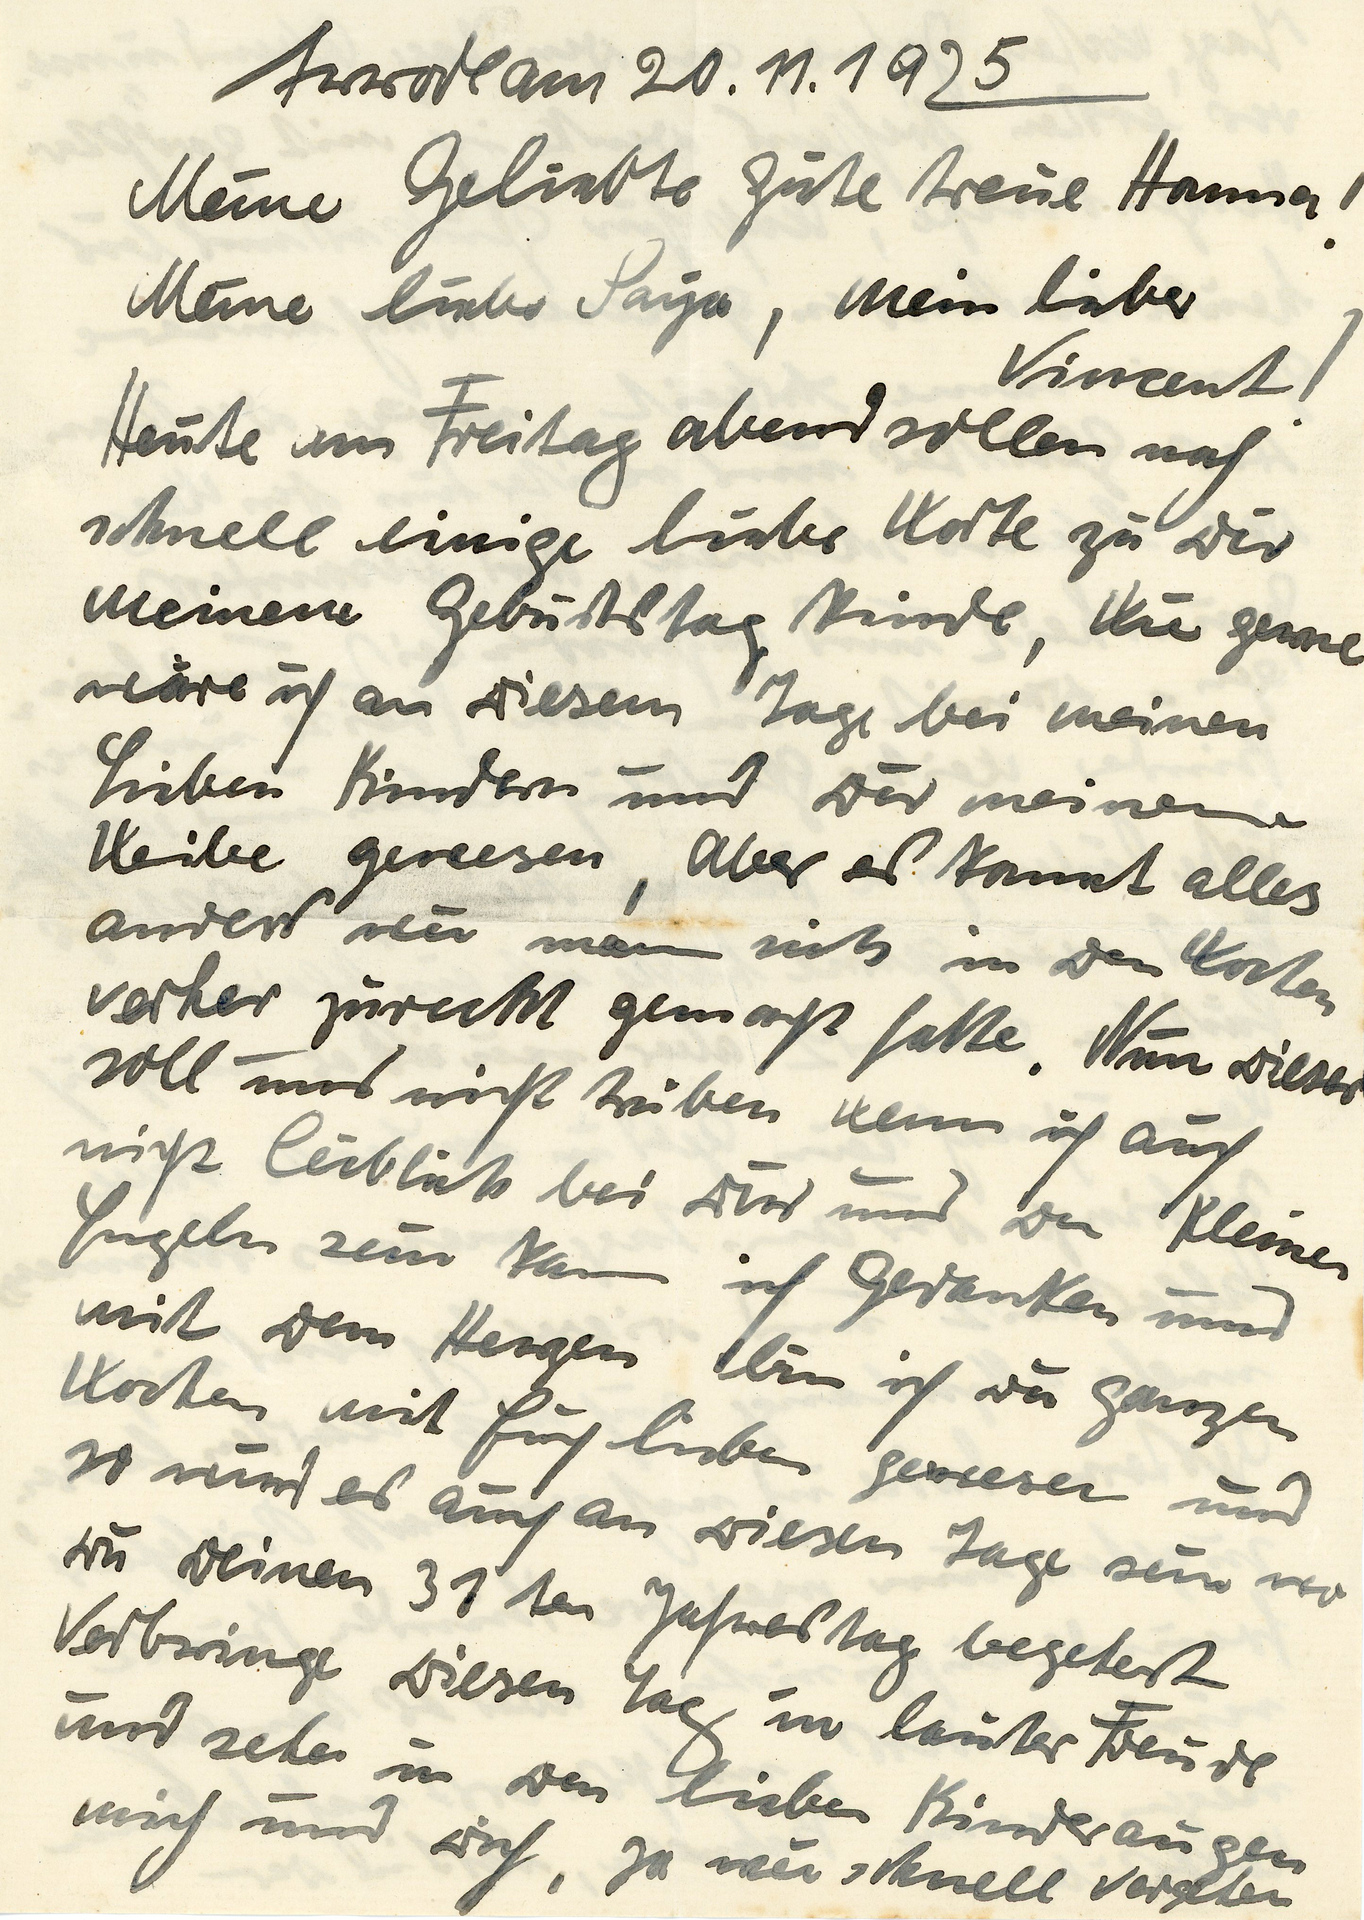 am 20.11.1925
Meine Geliebte gute treue Hanna!
Meine liebe , mein lieber
Vincent!
Heute am Freitag abend sollen noch
schnell einige liebe Worte zu dir
meinem Geburtstag Kinde, Wie gerne
wäre ich an diesem Tage bei meinen
Lieben Kindern und dir meinem
Weibe gewesen, Aber es kommt alles
anders wie man sich in den Worten
verher zurecht gemacht hatte. Nun dieses
soll uns nicht trüben wenn ich auch
nicht Leiblich bei dir und den Kleinen
Engeln sein kann ich Gedanken und
mit dem Herzen bin ich die ganzen
Wochen mit Euch lieben gewesen und
so wird es auch an diesen Tage sein wo
du deinen 31 ten Jahrestag begehest
Verbringe diesen Tag in lauter Freude
und sehe in den lieben Kinderaugen
mich und dich, ja wie schnell vergehen